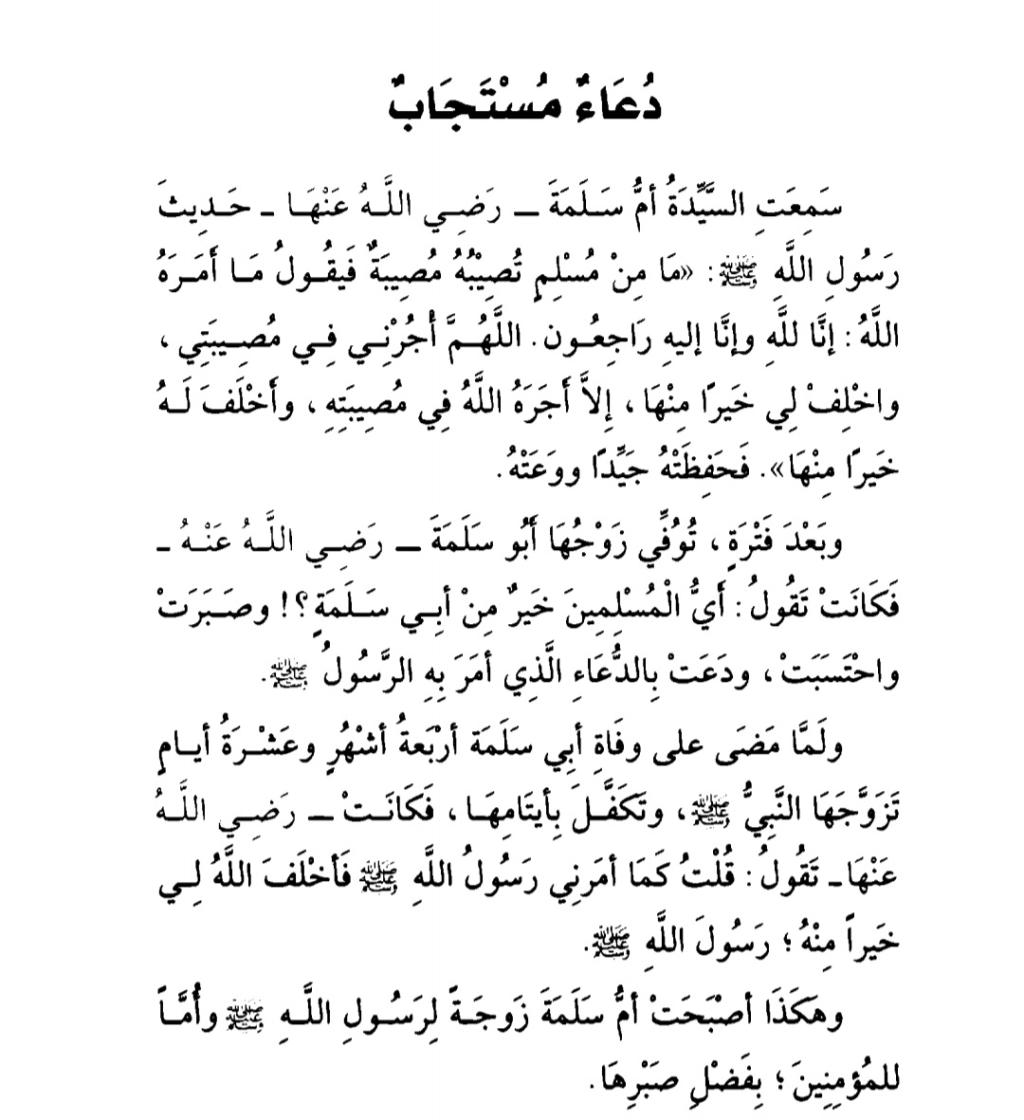 دُعَاءٌ مُسْتَجَابٌ
سَمِعَتِ السَّيِّدَةُ أمُّ سَلَمَةَ ـ رَضِي اللَّهُ عَنْهَا ـ حَدِيثَ
رَسُولِ اللَّهِ ﷺ: «مَا مِنْ مُسْلِمٍ تُصِيْبُهُ مُصِيبَةٌ فَيقُولُ مَا أَمَرَهُ
اللَّهُ: إنَّا للَّهِ وإنَّا إليهِ رَاجِعُون. اللَّهُمَّ أْجُرْنِي فِي مُصِيبَتِي،
واخْلِفْ لِي خَيرًا مِنْهَا، إِلاَّ أَجَرَهُ اللَّهُ فِي مُصِيبَتِهِ، وأَخْلَفَ لَهُ
خَيرًا مِنْهَا». فَحَفِظَتْهُ جَيِّدًا ووَعَتْهُ.
وبَعْدَ فَتْرَةٍ، تُوُفِّي زَوْجُهَا أَبُو سَلَمَةَ ـ رَضِي اللَّهُ عَنْهُ ـ
فَكَانَتْ تَقُولُ: أَيُّ الْمُسْلِمِينَ خَيرٌ مِنْ أبِي سَلَمَةٍ؟! وصَبَرَتْ
واحْتَسَبَتْ، ودَعَتْ بِالدُّعَاءِ الَّذِي أمَرَ بِهِ الرَّسُولُ ﷺ.
ولَمَّا مَضَى على وفَاةِ أبِي سَلَمَة أرْبَعةُ أشْهُرٍ وعَشْرَةُ أيامٍ
تَزَوَّجَهَا النَّبِيُّ ﷺ، وتَكَفَّلَ بِأيتَامِهَا، فَكَانَتْ ـ رَضِي اللَّهُ
عَنْهَا ـ تَقُولُ: قُلْتُ كَمَا أمَرَنِي رَسُولُ اللَّهِ ﷺ فَأخْلَفَ اللَّهُ لِي
خَيراً مِنْهُ؛ رَسُولَ اللَّهِ ﷺ.
وهَكَذَا أصْبَحَتْ أمُّ سَلَمَةَ زَوجَةً لِرَسُولِ اللَّهِ ﷺ وأُمَّاً
للمُؤمِنِينَ؛ بِفَضْلِ صَبْرِهَا.